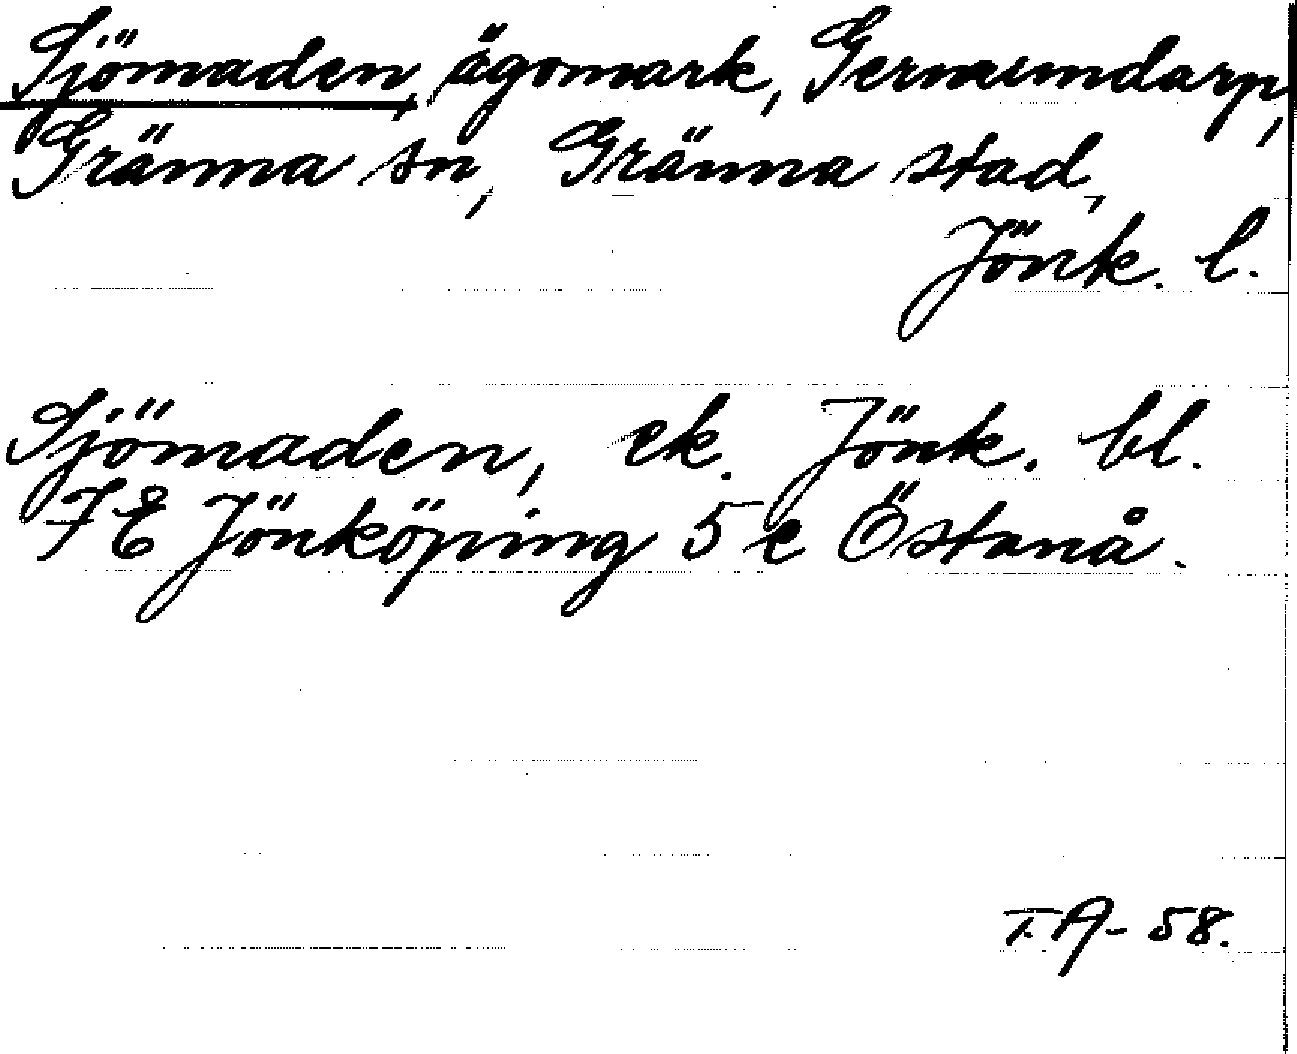 Sjömaden, ägomark, Germundarp,
Gränna sn, Gränna stad,
Jönk. l.
Sjömaden, ek. Jönk. bl.
7E Jönköping 5 e Östanå.
T.A- 58.